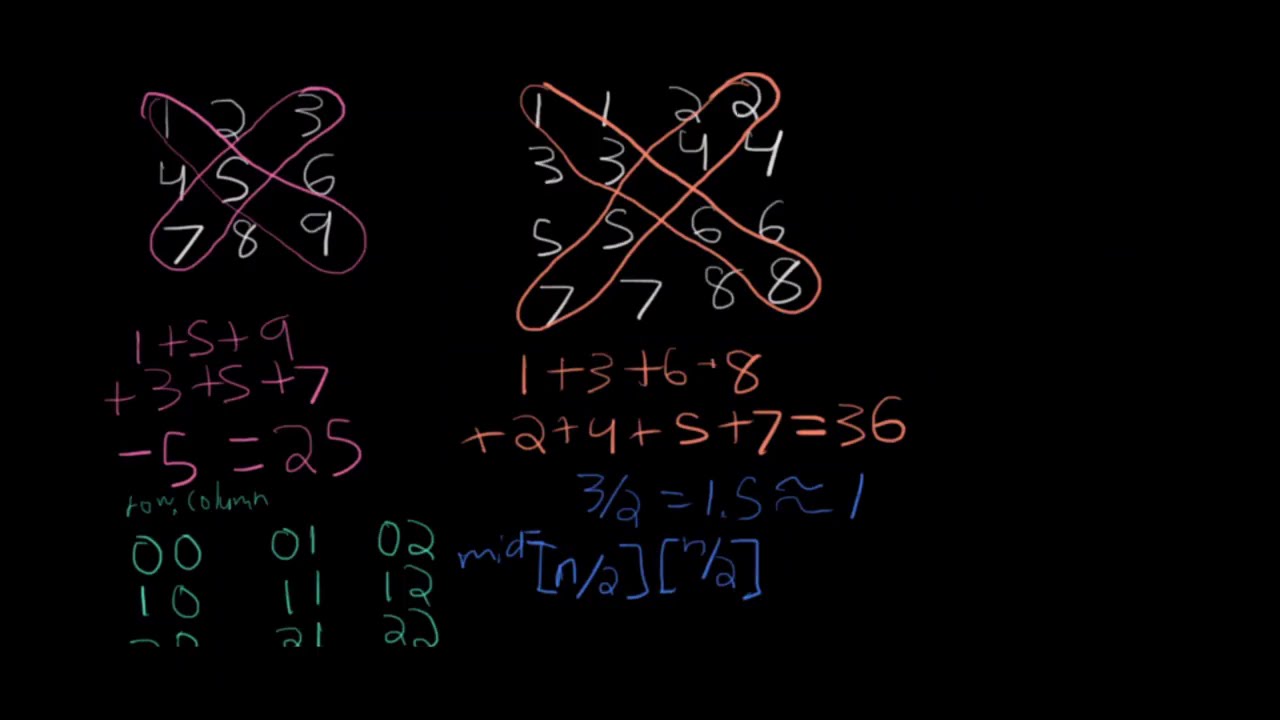 1 2 3
4 5 6
7 8 9
1+5+9
+3+5+7
-5=25
row, column
00 01 02
10 11 12
20 21 22
1 1 2 2
3 3 4 4
5 5 6 6
7 7 8 8
1+3+6+8
+2+4+5+7=36
3/2=1.5≈1
mid=[n/2][n/2]